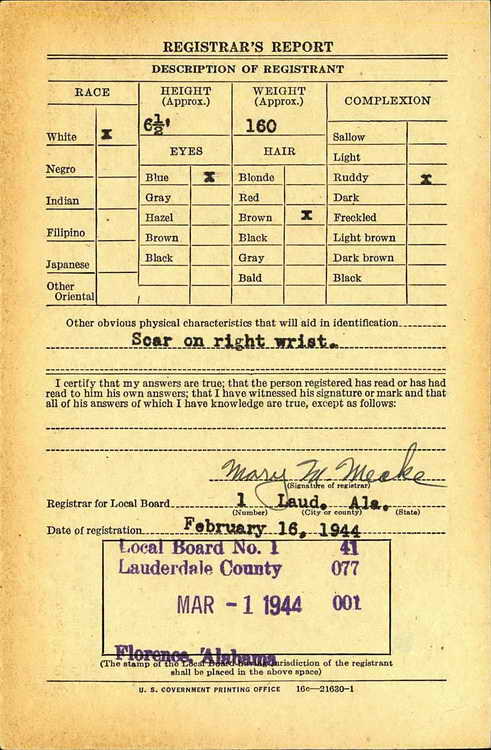 REGISTRAR'S REPORT
DESCRIPTION OF REGISTRANT
RACE
HEIGHT (Approx.)
WEIGHT (Approx.)
COMPLEXION
6½'
160
White X
Negro
Indian
Filipino
Japanese
Other Oriental
EYES
Blue X
Gray
Hazel
Brown
Black
HAIR
Blonde
Red
Brown X
Black
Gray
Bald
Sallow
Light
Ruddy X
Dark
Freckled
Light brown
Dark brown
Black
Other obvious physical characteristics that will aid in identification
Scar on right wrist.
I certify that my answers are true; that the person registered has read or has had
read to him his own answers; that I have witnessed his signature or mark and that
all of his answers of which I have knowledge are true, except as follows:
Mary M. Meeke
(Signature of registrar)
Registrar for Local Board 1 Laud. Ala.
(Number) (City or county) (State)
Date of registration February 16, 1944
Local Board No. 1 41
Lauderdale County 077
MAR - 1 1944 001
Florence, Alabama
(The stamp of the Local Board having jurisdiction of the registrant
shall be placed in the above space)
U. S. GOVERNMENT PRINTING OFFICE 16c—21630-1